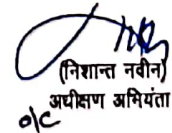 (निशान्त नवीन)
अधीक्षण अभियंता
o/c